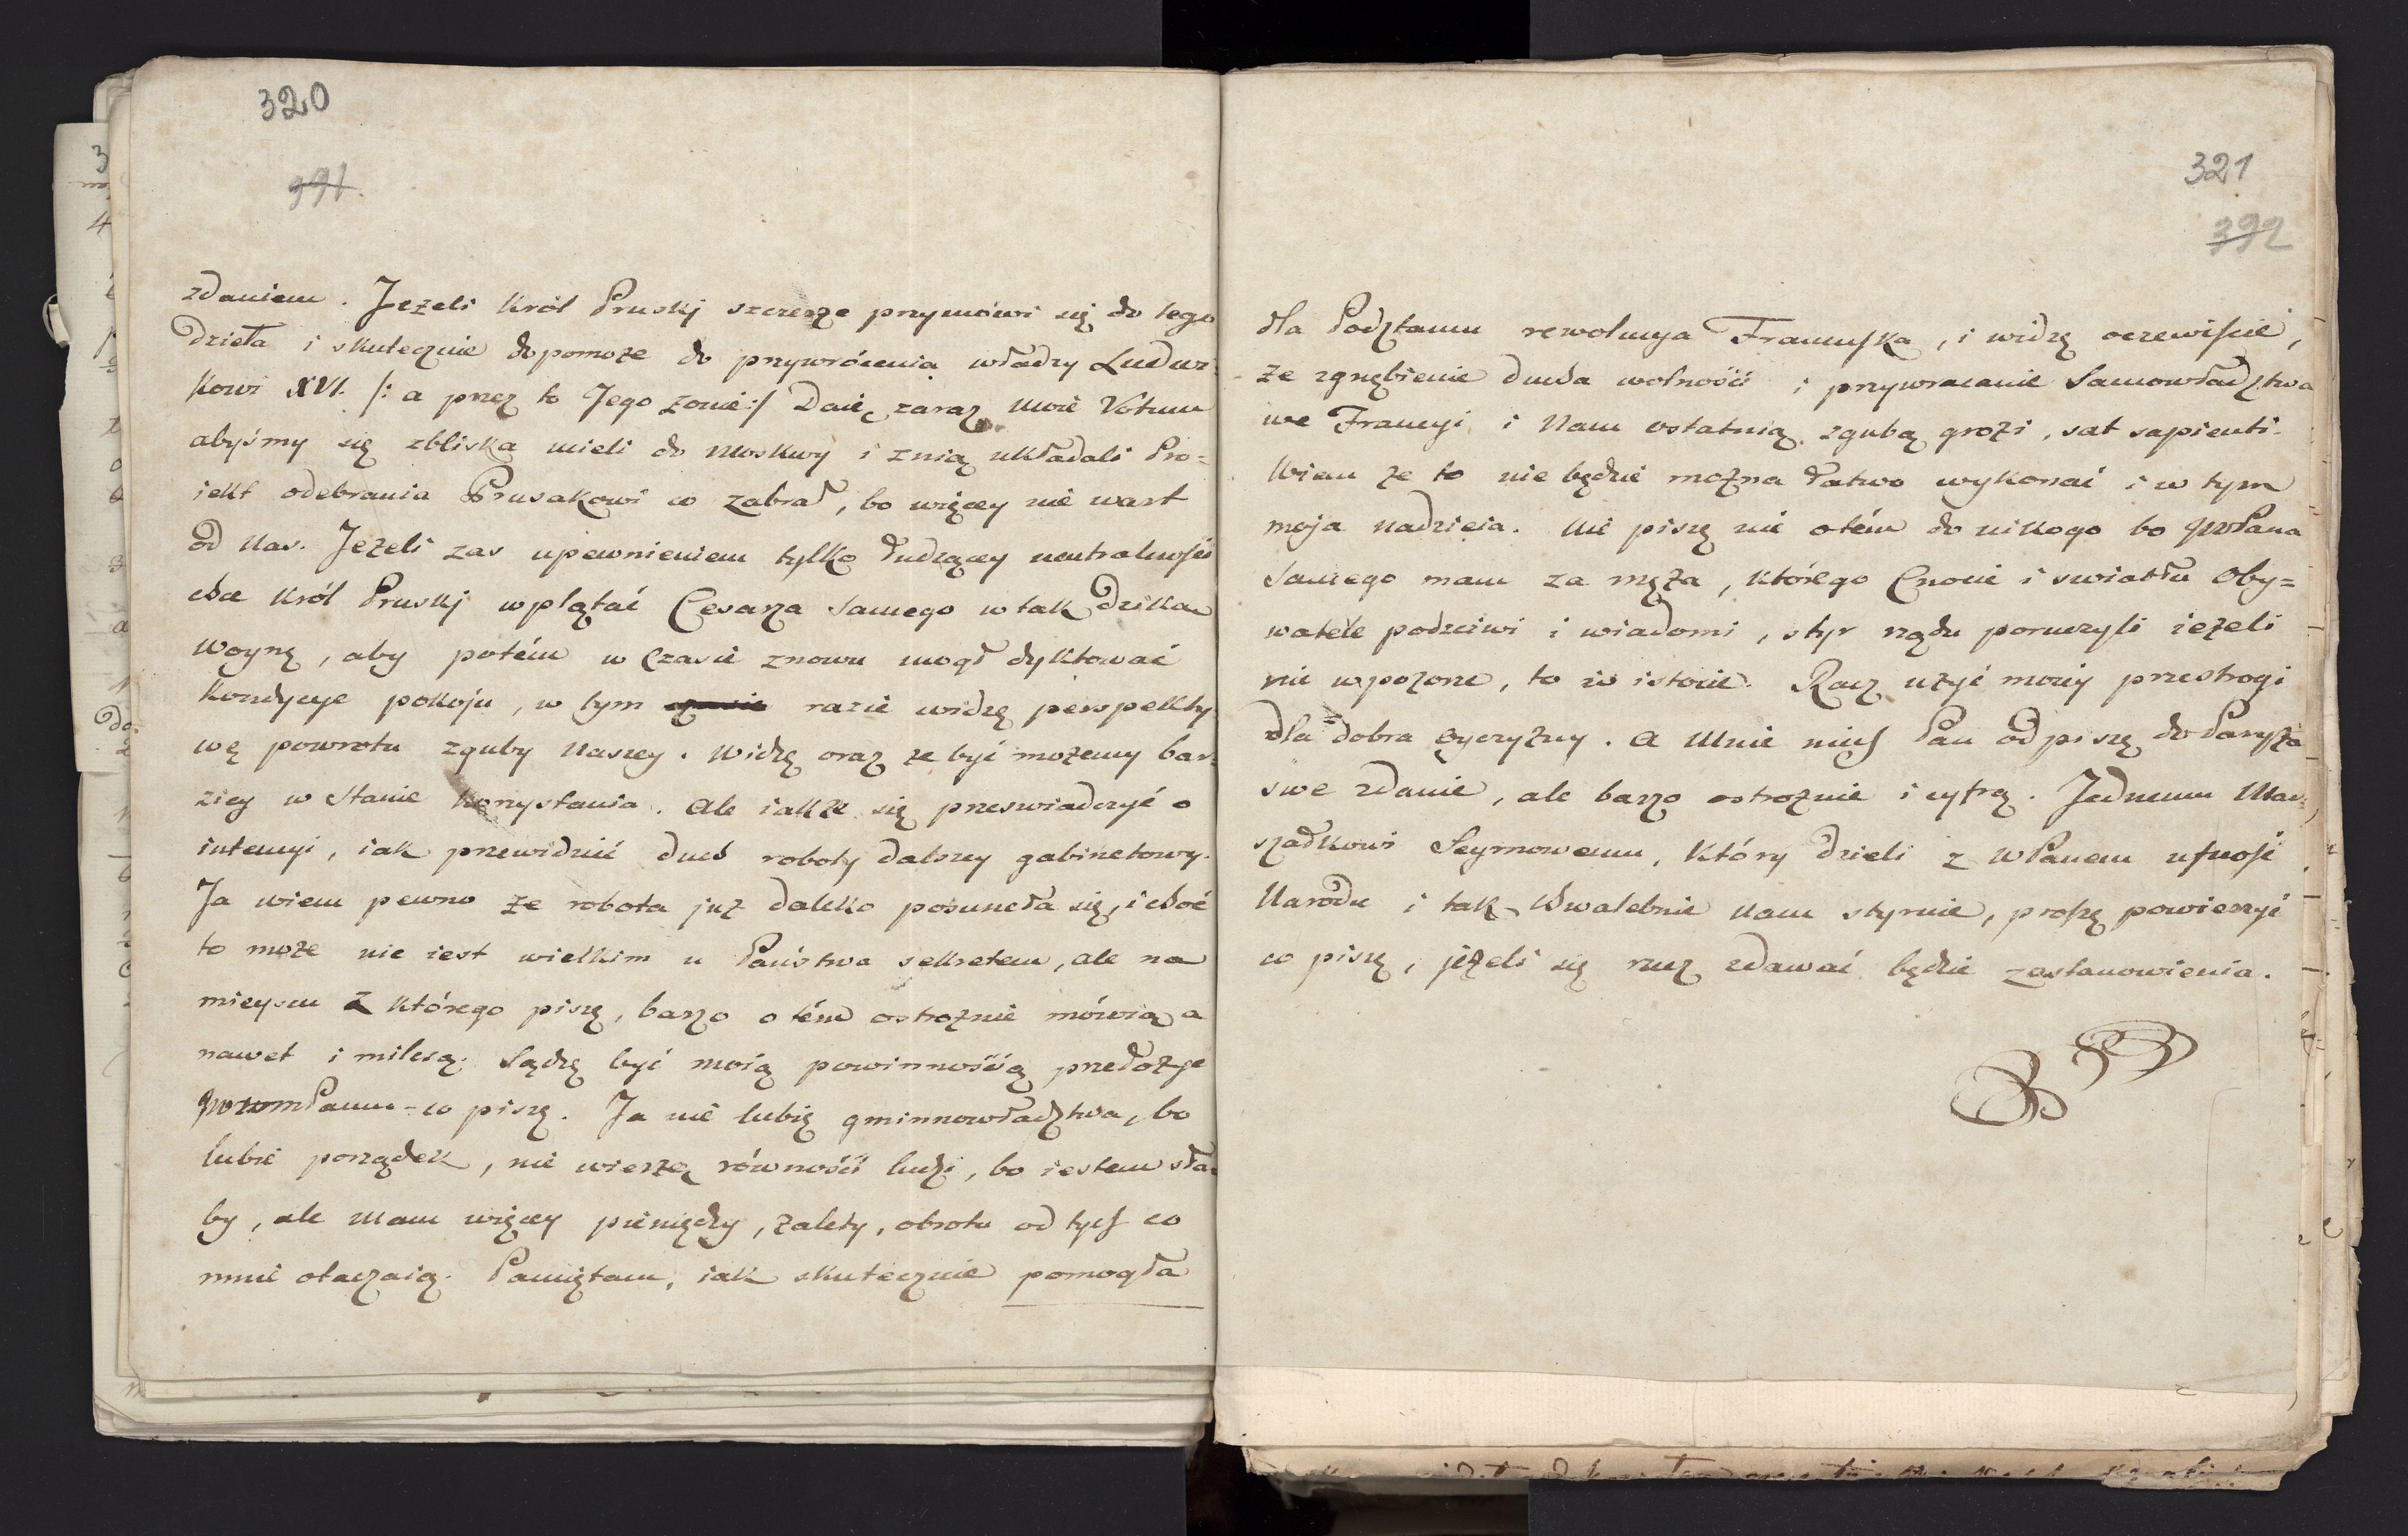 320
391.
zdaniem. Jeżeli Król Pruskj szczerze przymówi się do tego
dzieła i skutecznie dopomoże do przywrócenia władzy Ludwi-
kowi XVI. /: a przez to Jego żonie :/ Daię zaraz moie Votum
abyśmy się zbliska mieli do Moskwy i znią układali Pro=
iekt odebrania Prusakowi co zabrał, bo więcey nie wart
od Nas. Jeżeli zas upewnieniem tylko łudzącey neutralności
chce Król Pruskj wplątać Cesarza samego w tak dziką
woynę, aby potém w czasie znowu mógł dyktować
kondycye pokoju, w tym razie widzę perspekty
wę powrotu zguby naszey. Widzę oraz że być możemy bar-
ziey w stanie korzystania. Ale iakże się przeswiadczyć o
intencyi, iak przewidzieć duch roboty dalszey gabinetowy.
Ja wiem pewno że robota już daleko posuneła się, i choć
to może nie iest wielkim u Państwa sekretem, ale na
mieyscu z którego piszę, barzo o tém ostrożnie mówią a
nawet i milczą. Sądzę być moią powinnością przełożyc
co piszę. Ja nie lubię gminnowładztwa, bo
lubie porządek, nie wierzę równości ludzi, bo iestem sła-
by, ale mam więcey pieniędzy, zalety, obrotu od tych co
mnie otaczaią. Pamiętam, iak skutecznie pomogła
321
392
dla Podztamu rewolucya Francuska, i widzę oczewiście,
że zgnębienie ducha wolności i przywracanie Samowładztwa
we Francyi i Nam ostatnią zgubą grozi, sat sapienti.
Wiem że to nie będzie można łatwo wykonać i w tym
moja nadzieia. Nie piszę nic o tém do nikogo bo WPana
samego mam za męża, którego Cnocie i swiatłu Oby=
watele podzciwi i wiadomi, styr rządu poruczyli ieżeli
nie w pozorze, to w istocie. Racz użyć moiey przestrogi
dla dobra Oyczyzny. A Mnie niech Pan odpiszę do Paryża
swe zdanie, ale barzo ostrożnie i cyfrą. Jednemu Mar-
szałkowi Seymowemu, który dzieli z WPanem ufność
Narodu i tak chwalebnie nam styruie, proszę powierzyć
co piszę, jeżeli się rzecz zdawać będzie zastanowienia.